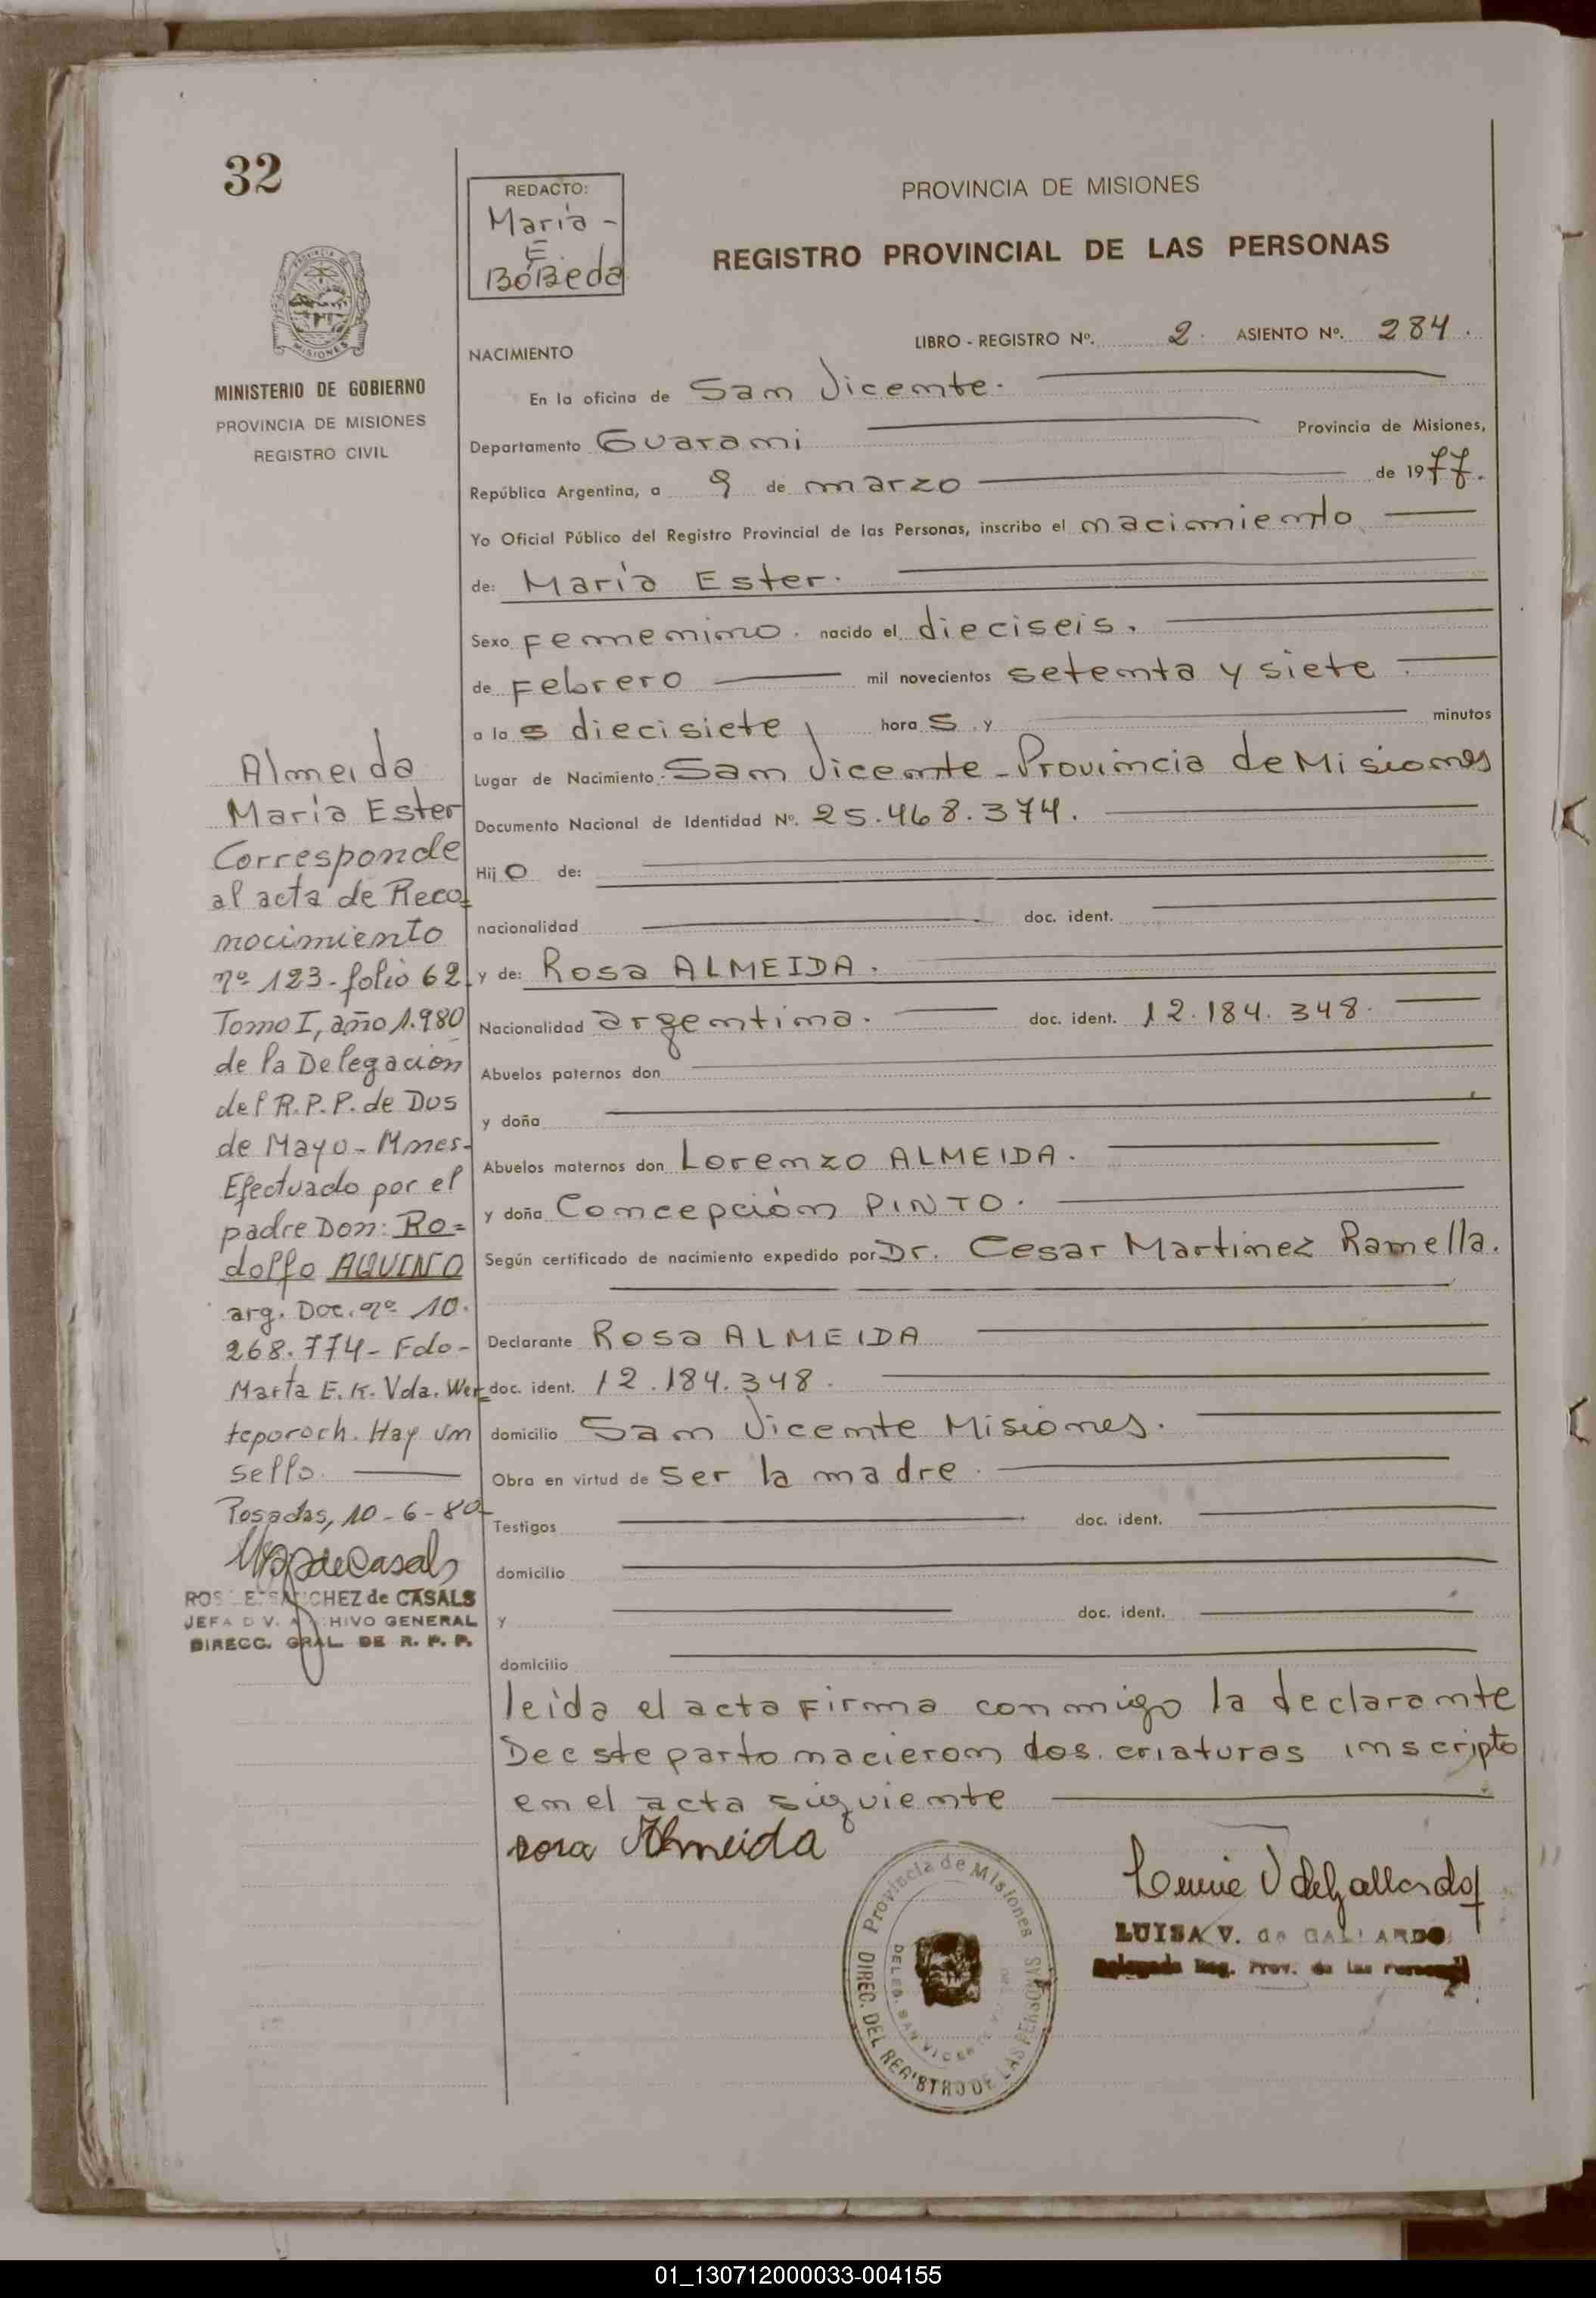 32
REDACTO:
María -
E.
BóBeda
PROVINCIA DE MISIONES
REGISTRO PROVINCIAL DE LAS PERSONAS
MISIONES
MINISTERIO DE GOBIERNO
PROVINCIA DE MISIONES
REGISTRO CIVIL
LIBRO - REGISTRO Nº. 2. ASIENTO Nº. 284.
NACIMIENTO
En la oficina de San Vicente.
Departamento Guarani Provincia de Misiones,
República Argentina, a 9 de marzo de 1977.
Yo Oficial Público del Registro Provincial de las Personas, inscribo el nacimiento
de: María Ester.
Sexo Femenino. nacido el dieciseis.
de Febrero mil novecientos setenta y siete.
a las diecisiete horas. y minutos
Lugar de Nacimiento San Vicente - Provincia de Misiones
Documento Nacional de Identidad Nº. 25.468.374.
Hijo de:
nacionalidad doc. ident.
y de: Rosa ALMEIDA.
Nacionalidad argentina. doc. ident. 12.184.348.
Abuelos paternos don
y doña
Abuelos maternos don Lorenzo ALMEIDA.
y doña Concepción PINTO.
Según certificado de nacimiento expedido por Dr. Cesar Martinez Ramella.
Declarante Rosa ALMEIDA
doc. ident. 12.184.348.
domicilio San Vicente Misiones.
Obra en virtud de ser la madre.
Testigos doc. ident.
domicilio
y doc. ident.
domicilio
leída el acta Firma conmigo la declarante
De este parto nacieron dos criaturas inscripto
en el acta siguiente
rosa Almeida
Almeida
María Ester
Corresponde
al acta de Reco=
nocimiento
nº 123-folio 62
Tomo I, año 1.980
de la Delegación
del R.P.P. de Dos
de Mayo - Mnes-
Efectuado por el
padre Don: Ro=
dolfo AQUINO
arg. Doc. nº 10.
268.774- Fdo-
Marta E. K. Vda. Wer=
teporoch. Hay un
sello.
Posadas, 10-6-80
de Casals
CHEZ de CASALS
JEFA DIV. ARCHIVO GENERAL
DIRECC. GRAL. DE R. P. P.
Provincia de Misiones
DIREC. DEL REGISTRO DE LAS PERSONAS
DELEG. SAN VICENTE
V de Gallardo
LUISA V. de GALLARDO
Delegada Reg. Prov. de las Personas
01_130712000033-004155